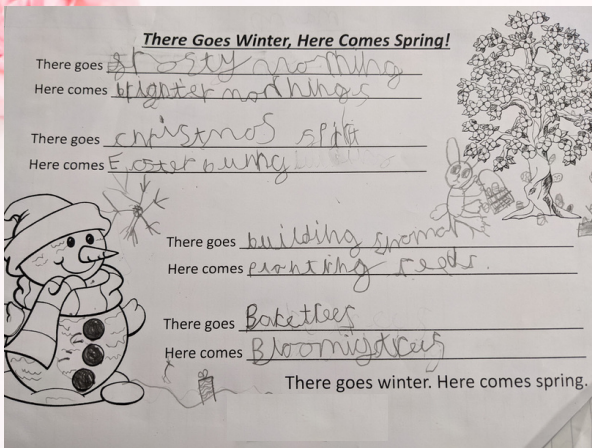 There Goes Winter, Here Comes Spring!
There goes frosty morning
Here comes brighter mornings
There goes christmas spirit
Here comes Easter bunny
There goes building snoman
Here comes planting seeds.
There goes Baretrees
Here comes Bloomigtrees
There goes winter. Here comes spring.